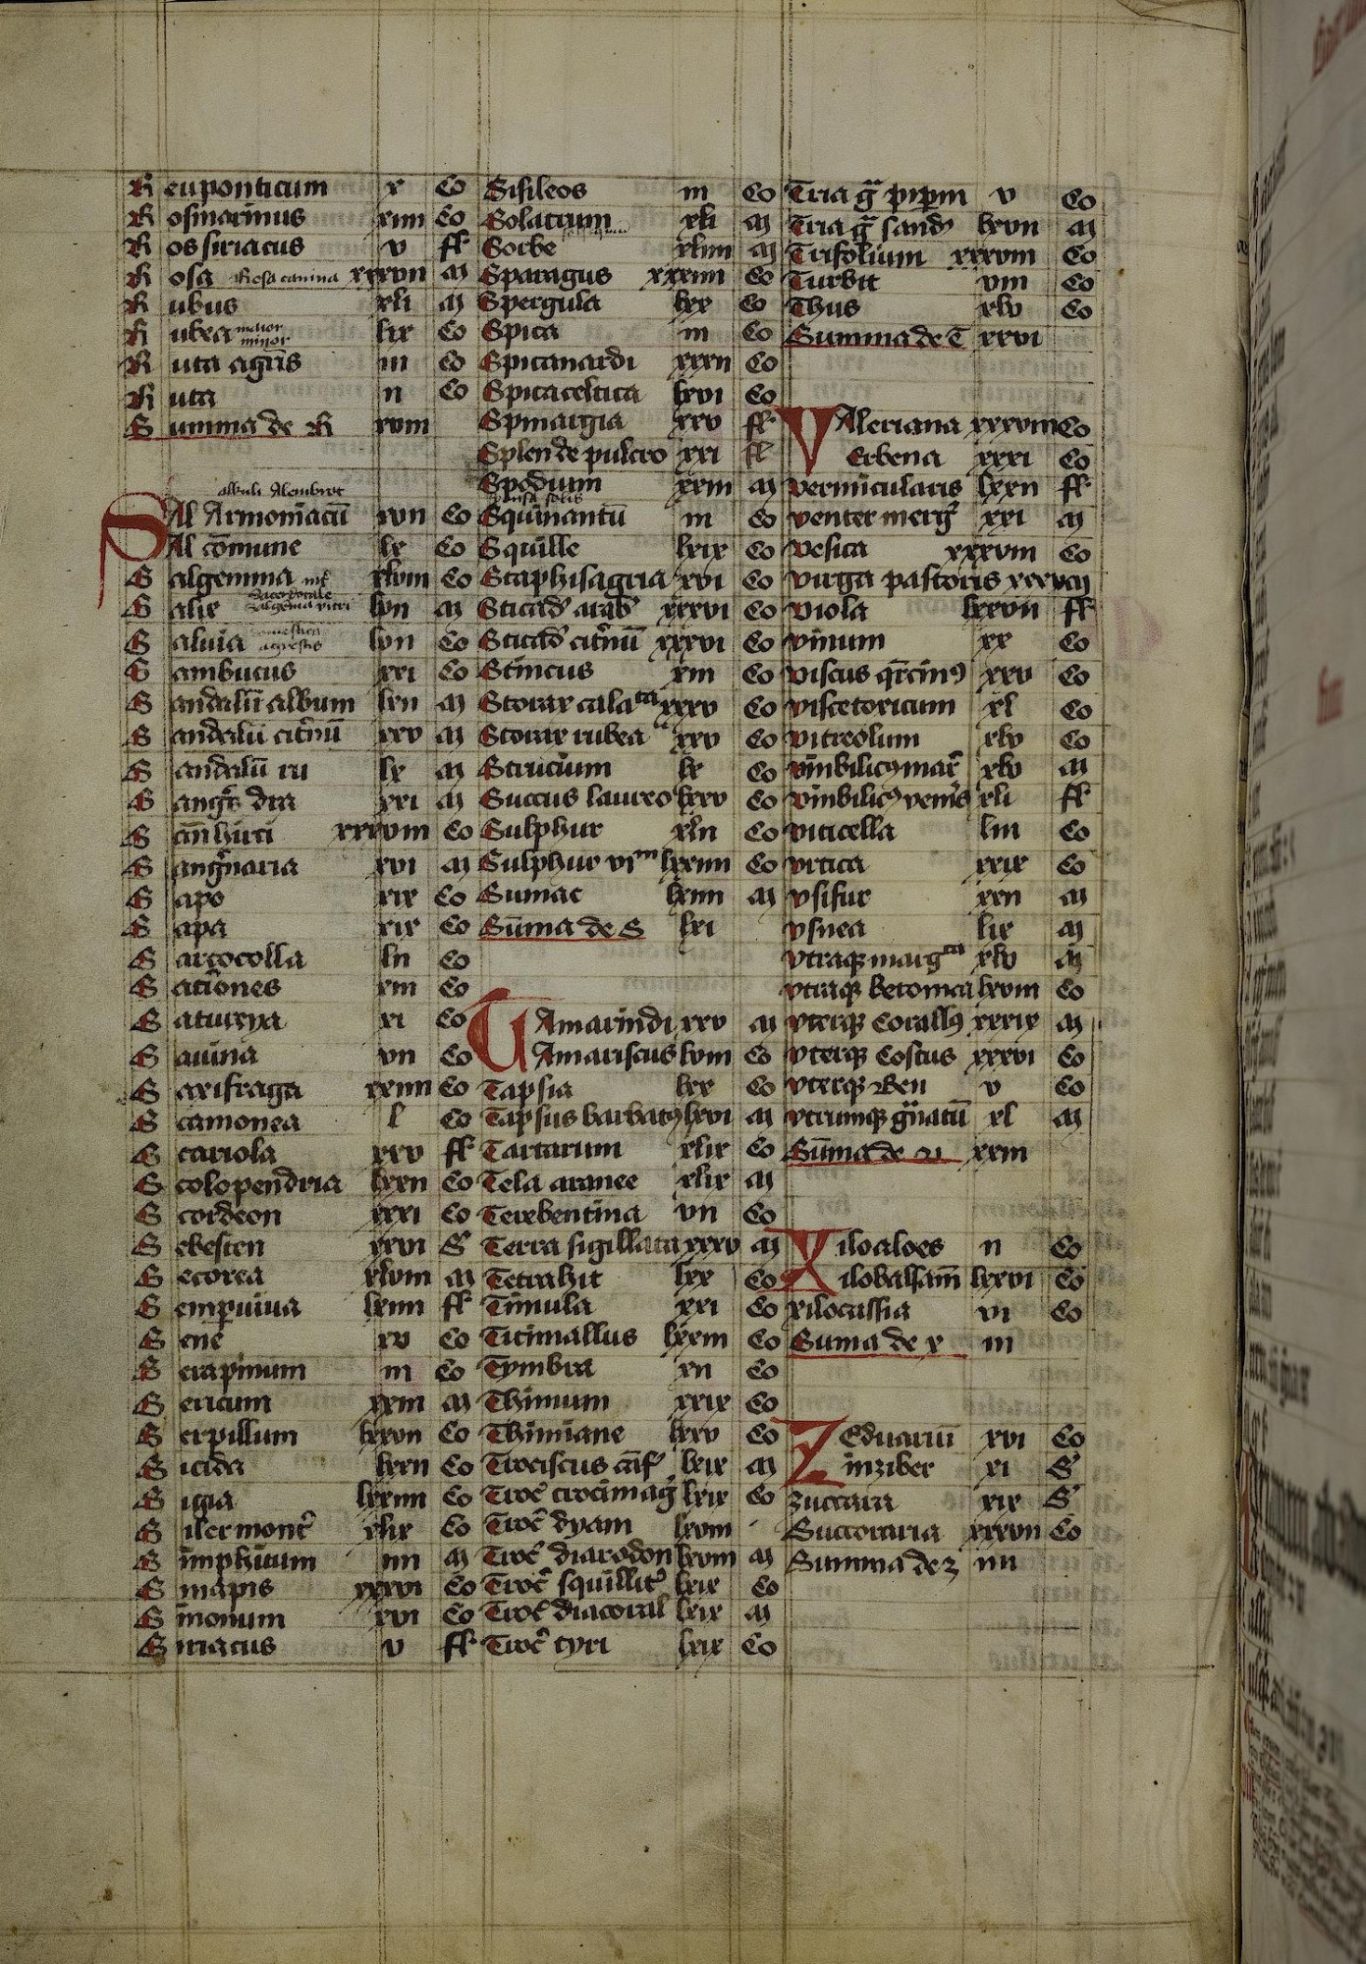 Reuponticum x Co
Rosmarinus xiiii Co
Ros siriacus v ff
Rosa Rosa canina xxxvii
Rubus xli
Rubea maior minor lix Co
Ruta agris iii Co
Ruta ii Co
Summa de R xviii
albuli Alembrot
Sal Armoniacū xvii Co
Sal cōmune lx Co
Salgemma xlviii Co
Salie lvii
Saluia agrestis lvii Co
Sambucus xxi Co
Sandalū album lxii
Sandalū citrinū xxv
Sandalū ru lx
xxi
xxxviii Co
xvi
Sapo xix Co
Sapa xix Co
Sarcocolla lii Co
Satiōnes xiii Co
Satureya xi Co
Sauina vii Co
Saxifraga xxiiii Co
Scamonea l Co
Scariola xxv ff
Scolopendria lxxii Co
Scordeon xxxi Co
Sebesten xxvi S
Secorea xlviii
Semperuiua lxiiii ff
Sene xv Co
Serapinum iii Co
Sericum xxiii
Serpillum lxxvii Co
Sicida lxxii Co
Sigia lxxiiii Co
Siler mont xlix Co
Simphitum iiii
Sinapis xxxvi Co
Sinonum xvi Co
Siriacus v ff
Sisileos iii Co
Solatrum xli
Sorbe xliiii
Sparagus xxxiiii Co
Spergula lxx Co
Spica iii Co
Spicanardi xxxii Co
Spicaceltica lxvi Co
Spinargia xxv ff
Splen de pulcro xxi ff
Spodium xxiii
Squinantū iii Co
Squille lxix Co
Staphisagria xvi Co
Sticad arab xxxvi Co
Sticad citrinū xxxvi Co
Stincus xiii Co
Storax cala xxxv Co
Storax rubea xxv Co
Strucium lx Co
Succus laureo lxxv Co
Sulphur xlii Co
Sulphur viuum lxxiiii Co
Sumac lxiiii
Sūma de S lxi
Tamarindi xxv
Tamariscus lviii Co
Tapsia lxx Co
Tapsus barbatꝰ lxvi
Tartarum xlix Co
Tela aranee xlix
Terebentina vii Co
Terra sigillata xxxv
Tetrahit lxx Co
Tinnula xxi Co
Titimallus lxxiii Co
Tymbra xii Co
Thimum xxix Co
Thimiane lxxv Co
Trociscus lxix
Troc crocimag lxix Co
Troc dyam lxviii
Troc diarodon lxviii
Troc squillit lxix Co
Troc diacoral lxix
Troc tyri lxix Co
Tria piperum v Co
Tria sand lxvii
Trifolium xxxviii Co
Turbit viii Co
Thus xlv Co
Summa de T xxvi
Valeriana xxxviii Co
Verbena xxxi Co
vermicularis lxxii ff
venter merg xxi
vesica xxxviii Co
virga pastoris
viola lxxvii ff
vinum xx Co
viscus qrcinꝰ xxv Co
viscetoricum xl Co
vitreolum xlv Co
vmbilicꝰ mar xlv
vmbilicꝰ veneris xli ff
viticella liii Co
vrtica xxix Co
vsifur xxii
vsnea lix
vtraqꝫ marg xlv
vtraqꝫ betonica lxviii Co
vterqꝫ Corallꝰ xxxix
vterqꝫ Costus xxxvi Co
vterqꝫ Ben v Co
vtrumqꝫ gnatū xl
Sūma de u xxiii
Xiloaloes ii Co
Xilobalsam lxxvi Co
xilocassia vi Co
Suma de x iii
Zeduariū xvi Co
Zinziber xi S
zuccara xix S
Succoraria xxxvii Co
Summa de z iiii